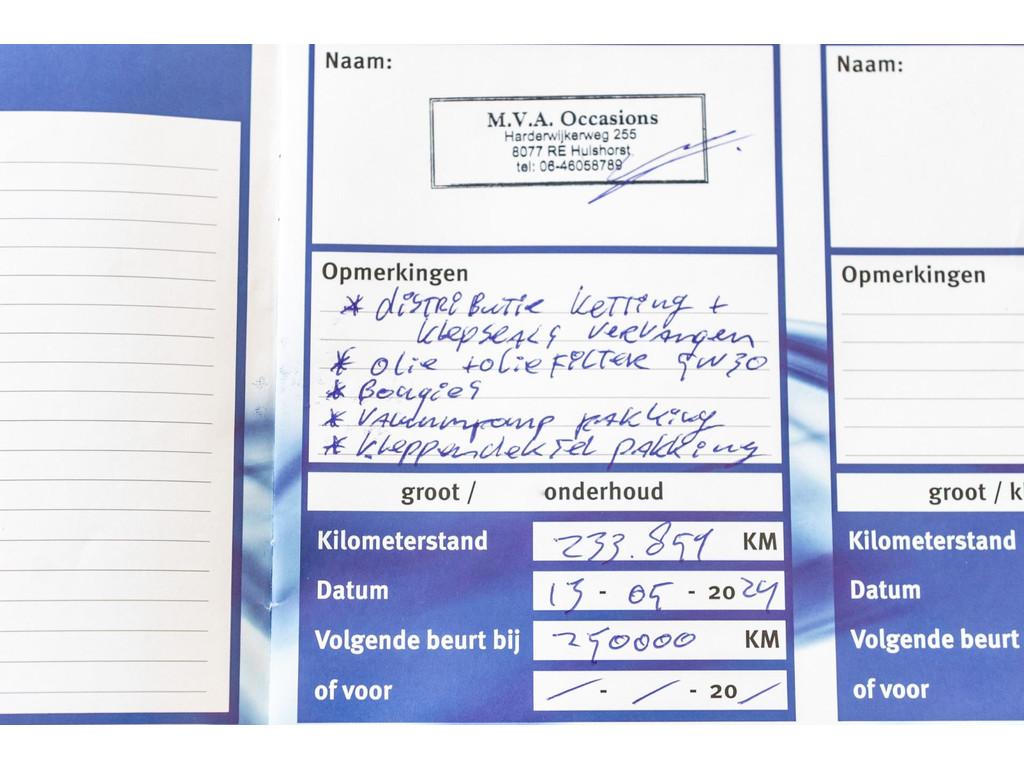 Naam:
M.V.A. Occasions
Harderwijkerweg 255
8077 RE Hulshorst
tel: 06-46058789
Opmerkingen
* distributie ketting +
klepseals vervangen
* olie + olie filter 5W30
* Bougies
* vacuumpomp pakking
* kleppendeksel pakking
groot / onderhoud
Kilometerstand
KM
Datum
13 - 05 - 2024
Volgende beurt bij
250000 KM
of voor
/ - / - 20 /
Naam:
Opmerkingen
groot / kl
Kilometerstand
Datum
Volgende beurt
of voor